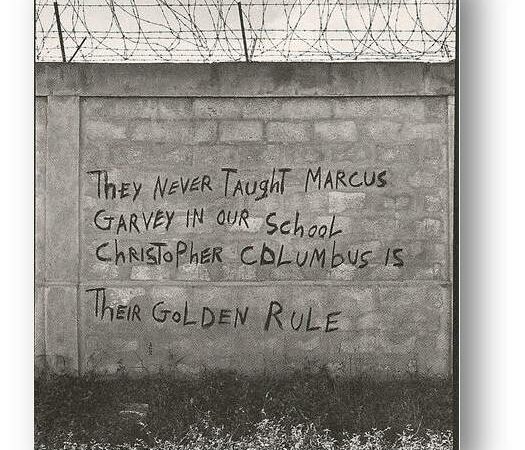 They NEVER TaughT MARCUS
GARVEY IN OUR School
ChRISToPhER COLUMbUS IS
TheIR GoLDEN RULE